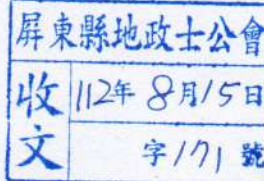 屏東縣地政士公會
收文
112年8月15日
字171號